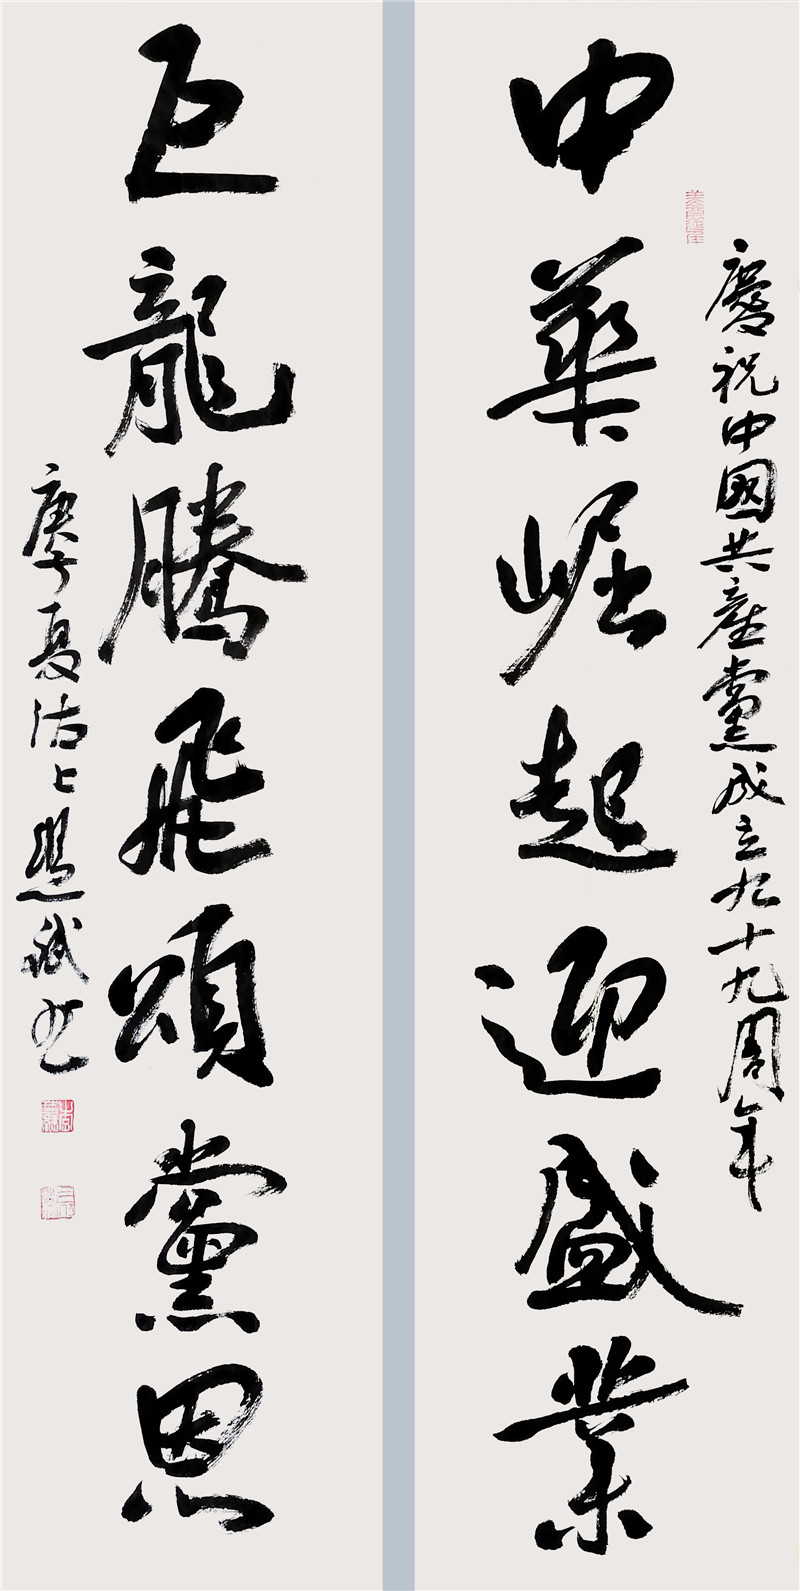 慶祝中國共產黨成立九十九周年
中華崛起迎盛業
巨龍騰飛頌黨恩
庚子夏沽上